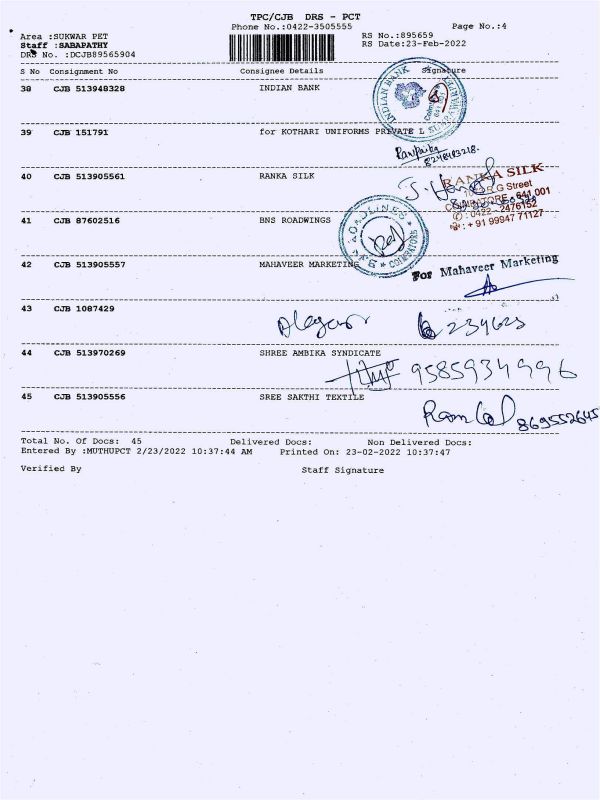 TPC/CJB DRS - PCT
Phone No.:0422-3505555 Page No.:4
Area :SUKWAR PET RS No.:895659
Staff :SABAPATHY RS Date:23-Feb-2022
DRS No. :DCJB89565904
S No Consignment No Consignee Details Signature
38 CJB 513948328 INDIAN BANK
INDIAN BANK
39 CJB 151791 for KOTHARI UNIFORMS PRIVATE L
40 CJB 513905561 RANKA SILK
RANKA SILK
G Street
COIMBATORE - 641 001
✆ : 0422 - 2476152
+ 91 99947 71127
41 CJB 87602516 BNS ROADWINGS
COIMBATORE
42 CJB 513905557 MAHAVEER MARKETING
For Mahaveer Marketing
43 CJB 1087429
234625
44 CJB 513970269 SHREE AMBIKA SYNDICATE
9585934996
45 CJB 513905556 SREE SAKTHI TEXTILE
869552645
Total No. Of Docs: 45 Delivered Docs: Non Delivered Docs:
Entered By :MUTHUPCT 2/23/2022 10:37:44 AM Printed On: 23-02-2022 10:37:47
Verified By Staff Signature